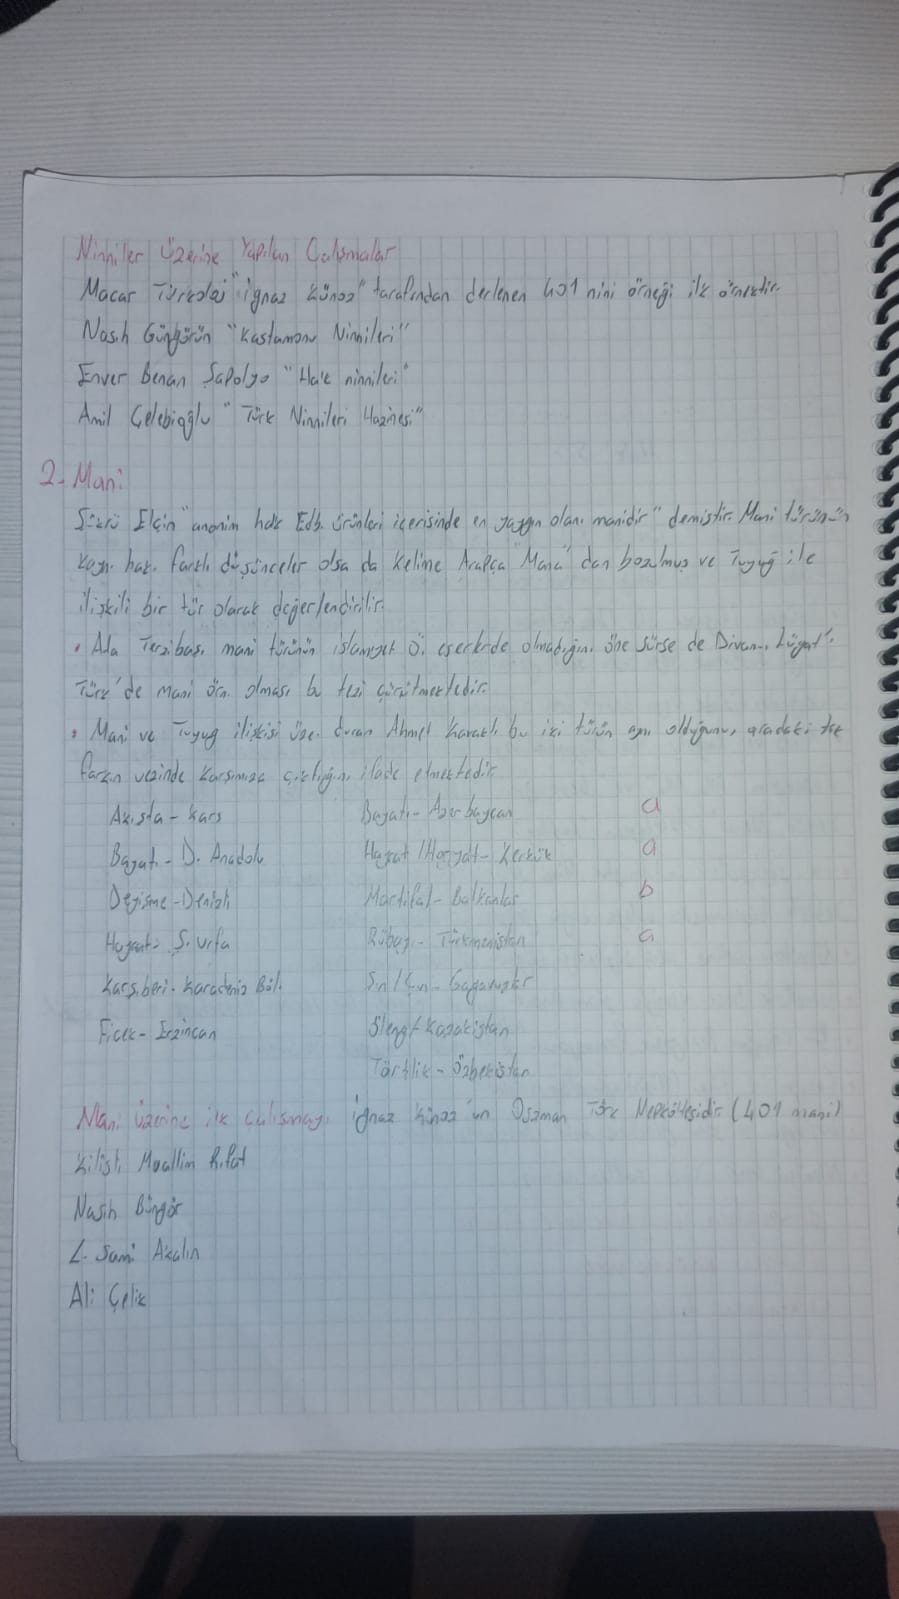 Ninniler Üzerine Yapılan Çalışmalar
Macar Türkoloj "İgnaz Künos" tarafından derlenen 401 nini örneği ilk örnektir.
Nasıh Güngörün "Kastamonu Ninnileri"
Enver Benan Şapolyo "Halk ninnileri"
Amil Çelebioğlu "Türk Ninnileri Hazinesi"
2. Mani
Şükrü Elçin "anonim halk Edb. ürünleri içerisinde en yaygın olanı manidir" demiştir. Mani türünün
kayn. hak. farklı düşünceler olsa da kelime Arapça "Mana" dan bozulmuş ve Tuyuğ ile
ilişkili bir tür olarak değerlendirilir.
• Ata Terzibaşı mani türünün islamiyet ö. eserlerde olmadığını öne sürse de Divan-ı Lügat-
Türk'de mani örn. olması bu tezi çürütmektedir.
• Mani ve Tuyug ilişkisi üze. duran Ahmet Karatlı bu iki türün aynı olduğunu, aradaki tek
farkın vezinde karşımıza çıktığını ifade etmektedir.
Akışta - Kars Bayatı - Azerbaycan a
Bayatı - D. Anadolu Hoyrat / Horyat - Kerkük a
Deyişme - Denizli Martifal - Balkanlar b
Hoyrat - Ş. urfa Rübayı - Türkmenistan a
Karşıberi - Karadeniz Böl. Şın / Çın - Gagavuzlar
Ficek - Erzincan Öleng - Kazakistan
Törtlik - Özbekistan
Mani üzerine ilk çalışmayı İgnaz Künos'un Osman Türk (401 mani)
Kilisli Muallim Rıfat
Nasıh Güngör
L. Sami Akalın
Ali Çelik